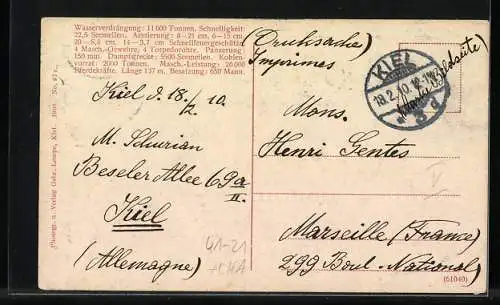 Wasserverdrängung: 11 600 Tonnen. Schnelligkeit
22,5 Seemeilen. Armierung: 8—21 cm, 6—15 cm
20—8,8 cm, 14—3,7 cm Schnellfeuergeschütze
4 Masch.-Gewehre, 4 Torpedorohre. Panzerung:
150 mm. Dampfstrecke: 5500 Seemeilen. Kohlen-
vorrat: 2000 Tonnen. Masch.-Leistung: 26 000
Pferdekräfte. Länge 137 m. Besatzung: 650 Mann.
Kiel d. 18./2. 10.
M. Schurian
Beseler Allee 69a
II.
Kiel
(Allemagne)
Photogr. u. Verlag Gebr. Lempe, Kiel.
(Drucksache)
Imprimés
KIEL
18.2.10.
Mons.
Henri Gentes
Marseille (France)
299 Boul. National
(61040)